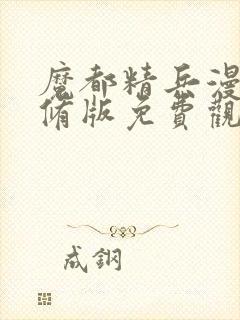 魔都精兵漫
脩版免費觀
成鋼